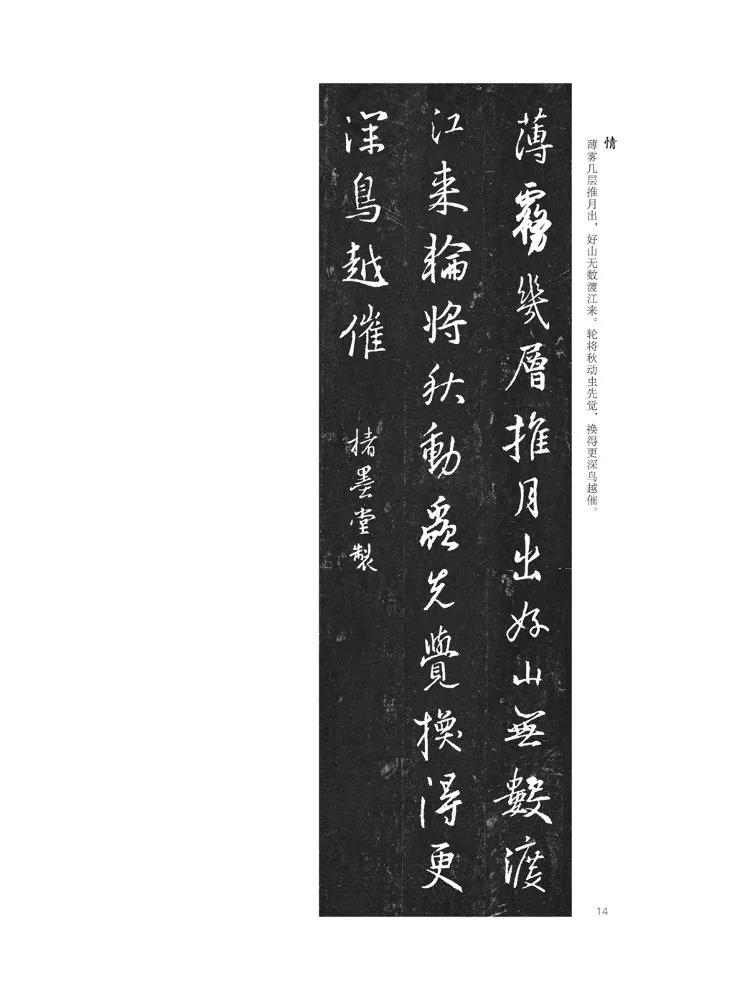 情
薄雾几层推月出，好山无数渡江来。轮将秋动虫先觉，换得更深鸟越催。
薄霧幾層推月出好山無數渡
江来輪將秋動蟲先覺換得更
深鳥越催
楮墨堂製
14